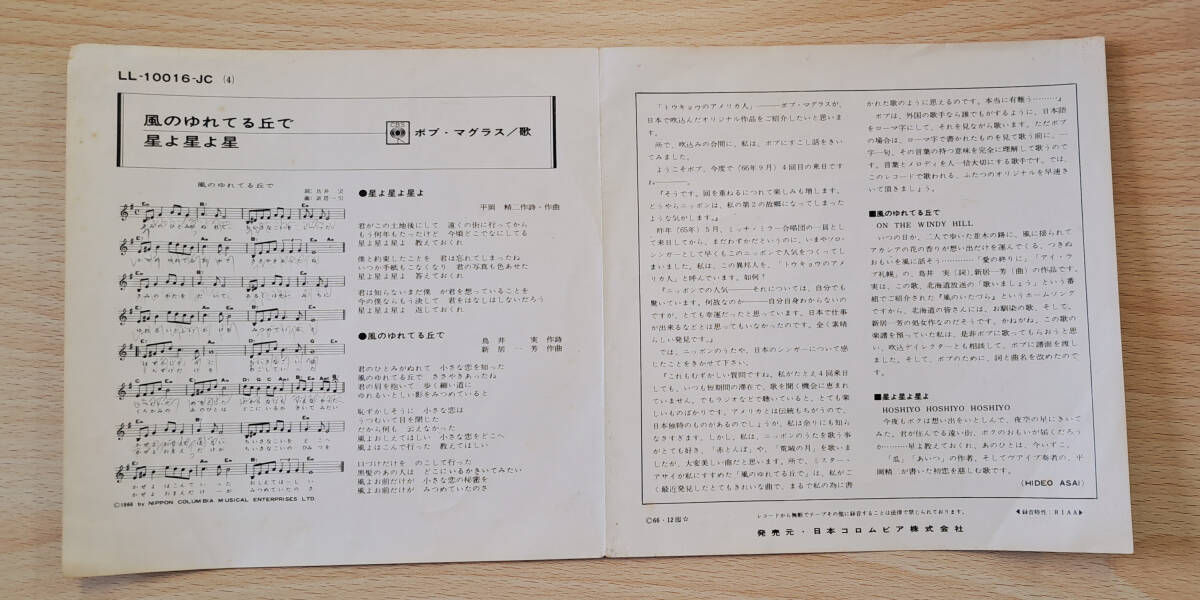 LL-10016-JC (4)
風のゆれてる丘で
星よ星よ星
CBS
ボブ・マグラス／歌
風のゆれてる丘で
●星よ星よ星よ
平岡 精二 作詩・作曲
君がこの土地後にして 遠くの街に行ってから
もう何年もたったけど 今頃どこでなにしてる
星よ星よ星よ 教えておくれ
僕と約束したことを 君は忘れてしまったね
いつか手紙もこなくなり 君の写真も色あせた
星よ星よ星よ 答えておくれ
君は知らないまだ僕が 君を想っていることを
今の僕ならもう決して 君をはなしはしないだろう
星よ星よ星よ 返しておくれ
●風のゆれてる丘で
鳥井 実 作詩
新居 一芳 作曲
君のひとみがぬれて 小さな恋を知った
風のゆれてる丘で ささやきあったね
君の肩を抱いて 歩く細い道に
ゆれるいとしい影をみつめていると
恥ずかしそうに 小さな恋は
うつむいて目を閉じた
だから何も 云えなかった
風よおしえてほしい 小さな恋をどこへ
風よはこんで行った 教えてほしい
口づけだけを のこして行った
黒髪のあの人は どこにいるかきいてみたい
風よお前だけが 小さな恋の秘密を
風よお前だけが みつめていたのさ
©1966 by NIPPON COLUMBIA MUSICAL ENTERPRISES LTD.
「トウキョウのアメリカ人」———ボブ・マグラスが、
日本で吹込んだオリジナル作品をご紹介したいと思いま
す。
所で、吹込みの合間に、私は、ボブにすこし話をきい
てみました。
ようこそボブ、今度で（66年9月）4回目の来日です
ね———。
『そうです。回を重ねるにつれて楽しみも増します。
どうやらニッポンは、私の第2の故郷になってしまった
ような気がします。』
昨年（65年）5月、ミッチ・ミラー合唱団の一員とし
て来日してから、まだわずかだというのに、いまやソロ・
シンガーとして早くもこのニッポンで人気をつくってし
まいました。私は、この異邦人を、「トウキョウのアメ
リカ人」と呼んでいます。如何？
『ニッポンでの人気———それについては、自分でも
驚いています。何故なのか———自分自身わからないの
ですが、とても幸運だったと思っています。日本で仕事
が出来るなどとは思ってもいなかったのです。全く素晴
らしい発見です。』
では、ニッポンのうたや、日本のシンガーについて感
じたことをきかせて下さい。
『これもむずかしい質問ですね。私がたとえ4回来日
しても、いつも短期間の滞在で、歌を聞く機会に恵まれ
ていません。でもラジオなどで聴いていると、とても楽
しいものばかりです。アメリカとは伝統もちがうので、
日本独特のものがあるのでしょうが、私は余りにも知ら
なさすぎます。しかし、私は、ニッポンのうたを歌う事
がとても好き、「赤とんぼ」や、「荒城の月」を歌いま
したが、大変美しい曲だと思います。所で、ミスター・
アサイが私にすすめた「風のゆれてる丘で」は、私がご
く最近発見したとてもきれいな曲で、まるで私の為に書
かれた歌のように思えるのです。本当に有難う………』
ボブは、外国の歌手なら誰でもがするように、日本語
をローマ字にして、それを見ながら歌います。ただボブ
の場合は、ローマ字で書かれたものを見て歌う前に、一
字一句、その言葉の持つ意味を完全に理解して歌うので
す。言葉とメロディを人一倍大切にする歌手です。では、
このレコードで歌われる、ふたつのオリジナルを早速き
いて頂きましょう。
■風のゆれてる丘で
ON THE WINDY HILL
いつの日か、二人で歩いた並木の路に、風に揺られて
アカシアの花の香りが想い出だけを運んでくる。つきぬ
おもいを風に話そう…………「愛の終りに」「アイ・ラ
ブ札幌」の、鳥井 実（詞）新居一芳（曲）の作品です。
実は、この歌、北海道放送の「歌いましょう」という番
組でご紹介された『風のいたづら』というホームソング
ですから、北海道の皆さんには、お馴染の歌、そして、
新居一芳の処女作なのだそうです。かねがね、この歌の
楽譜を預っていた私は、是非ボブに歌ってもらおうと思
い、吹込ディレクターとも相談して、ボブに譜面を渡し
ました。そして、ボブのために、詞と曲名を改めたので
す。
■星よ星よ星よ
HOSHIYO HOSHIYO HOSHIYO
今夜もボクは想い出をいとしんで、夜空の星にきいて
みた。君が住んでる遠い街、ボクのおもいが届くだろう
か———星よ教えておくれ、あのひとは、今いずこ。
「爪」「あいつ」の作者、そしてヴァイブ奏者の、平
岡精二が書いた初恋を慈しむ歌です。
(HIDEO ASAI)
レコードから無断でテープその他に録音することは法律で禁じられております。
Ⓒ66・12☆
◀録音特性：RIAA▶
発売元・日本コロムビア株式会社